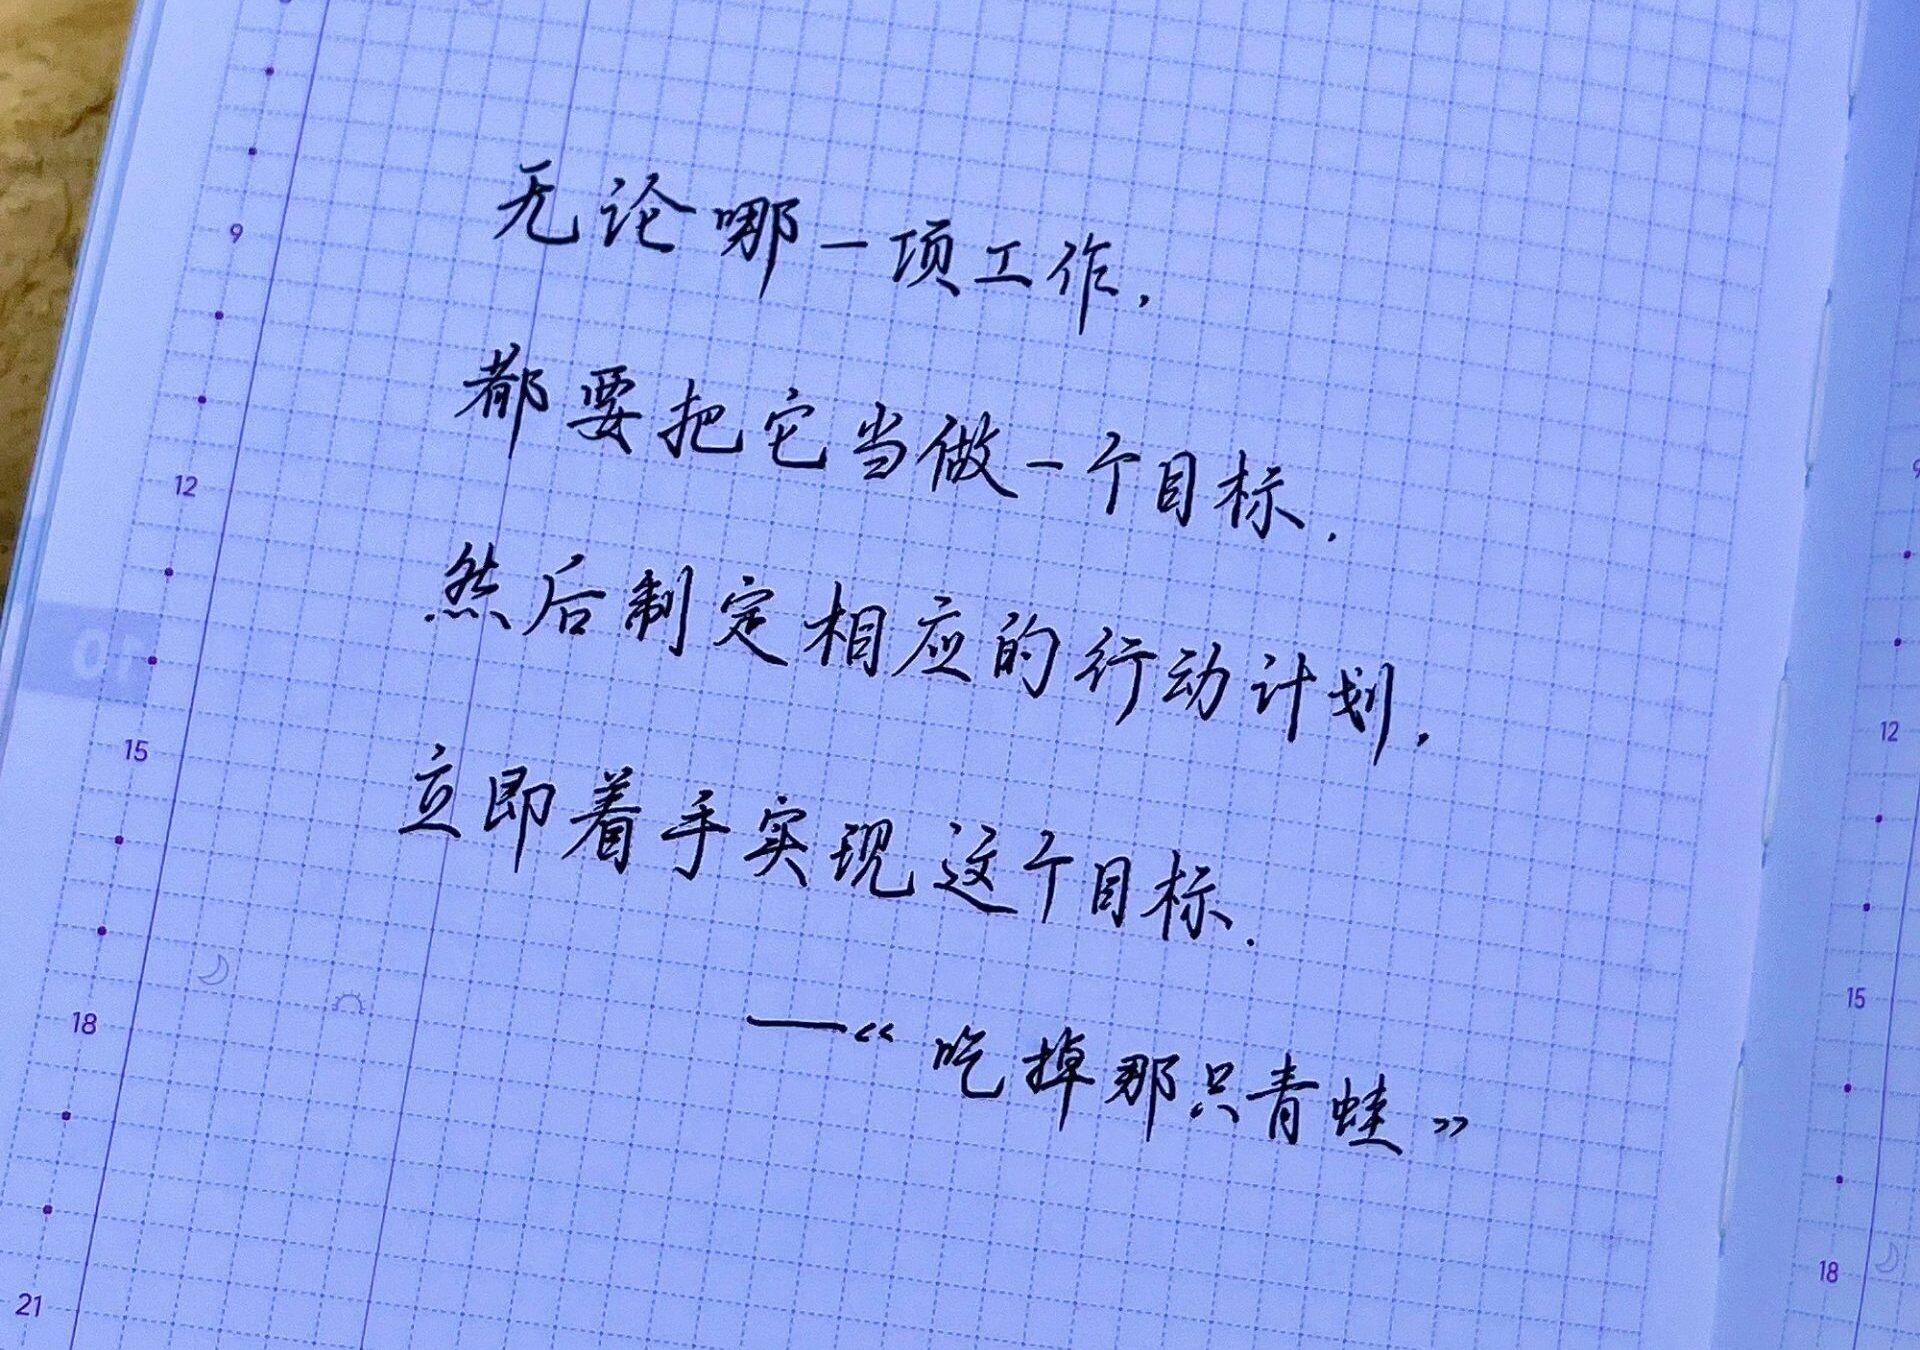 9
12
15
18
21
无论哪一项工作，
都要把它当做一个目标.
然后制定相应的行动计划，
立即着手实现这个目标.
——《吃掉那只青蛙》
12
15
18